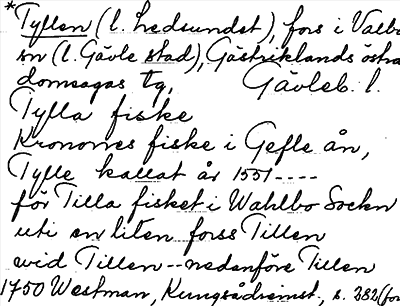 *Tyllen (l. Hedsundet), fors i Valbo
sn (l. Gävle stad), Gästriklands östra
domsagas tg, Gävleb. l.
Tylla fiske
Kronones fiske i Gefle ån,
Tylle kallat år 1551----
för Tilla fisket i Wahlbo Sockn
uti en liten forss Tillen
wid Tillen--nedanföre Tillen
1750 Westman, Kungsådreinst, s. 382 (for